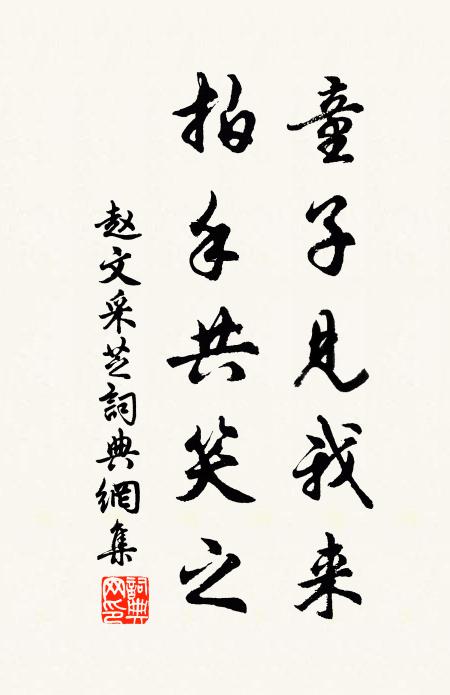 童子見我来
拍手共笑之
赵文采芝詞典網集
詞典網印